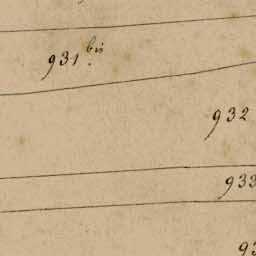 931 bis
932
933
93